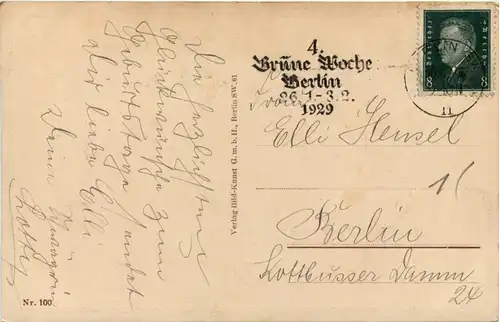 Die herzlichsten
Glückwünsche zum
Geburtstage sendet
Dir liebe Elli
Deine Schwägerin
Lotte
Nr. 100
Verlag Bild-Kunst G. m. b. H., Berlin SW. 61
4.
Grüne Woche
Berlin
26.1.-3.2.
1929
Deutsches Reich
8 8
11
Elli Hensel
Berlin
Kottbusser Damm
24